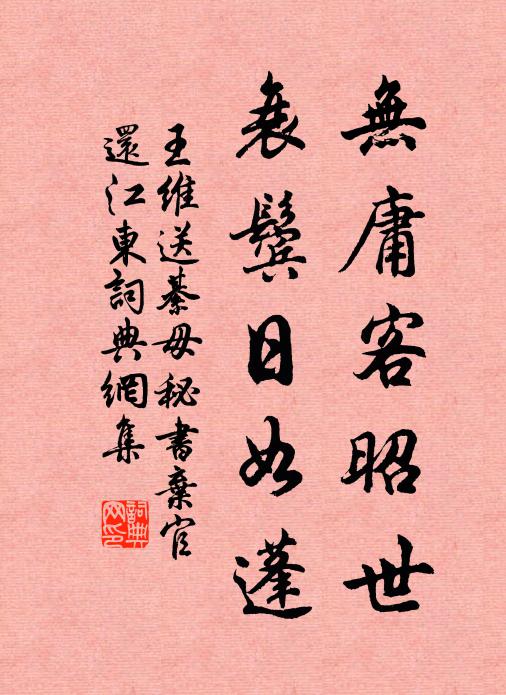 無庸客昭世
衰鬢日如蓬
王維送綦毋秘書棄官
還江東詞典網集
詞典網印